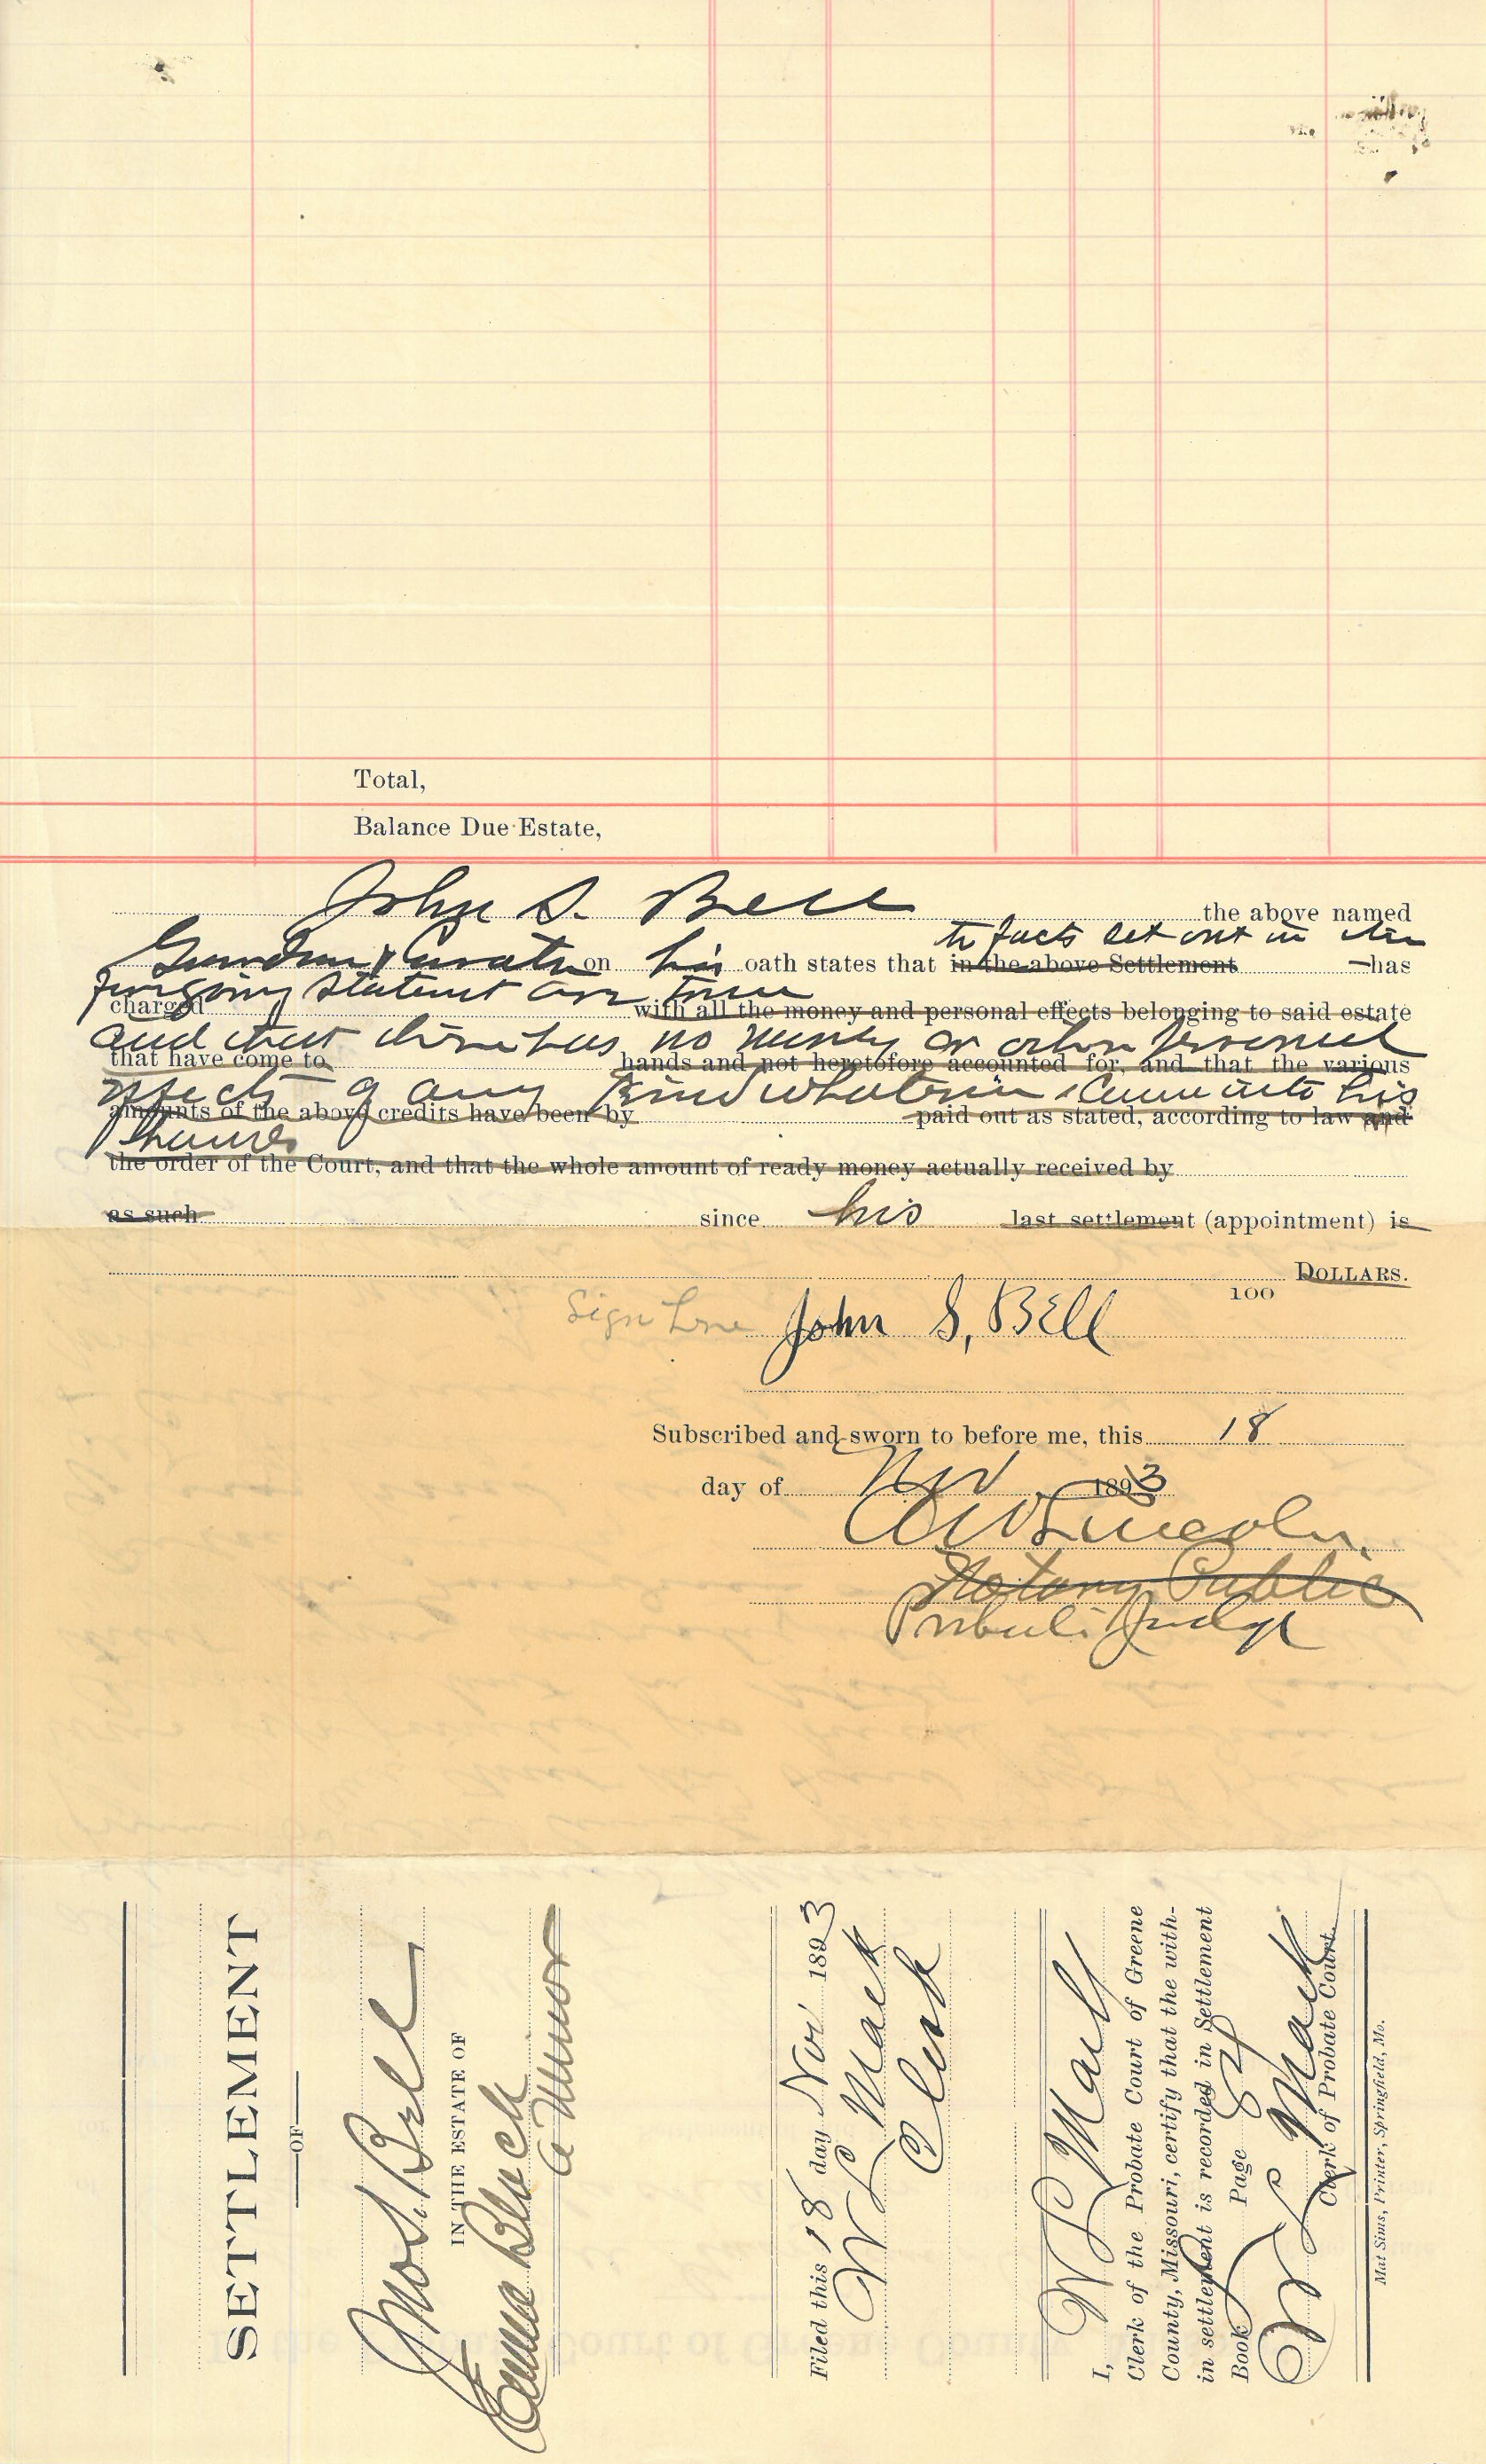 Total,
Balance Due Estate,
John S. Bell the above named
the facts set out in the
Guardian & Curator on his oath states that in the above Settlement has
foregoing statement are true
charged with all the money and personal effects belonging to said estate
and that there has no money or other personal
that have come to hands and not heretofore accounted for, and that the various
effects of any kind whatever come into his
amounts of the above credits have been by paid out as stated, according to law and
hands
the order of the Court, and that the whole amount of ready money actually received by
as such since his last settlement (appointment) is
DOLLARS.
100
Sign here John S, Bell
Subscribed and sworn to before me, this 18
day of Nov 1893
A W Lincoln.
Notary Public
Probate Judge
SETTLEMENT
OF
Jno S. Bell
IN THE ESTATE OF
Emma Block
a Minor
Filed this 18 day Nov 1893
W L Mack
Clerk
I, W L Mack
Clerk of the Probate Court of Greene
County, Missouri, certify that the with-
in settlement is recorded in Settlement
Book Page 82
W L Mack
Clerk of Probate Court.
Mat Sims, Printer, Springfield, Mo.